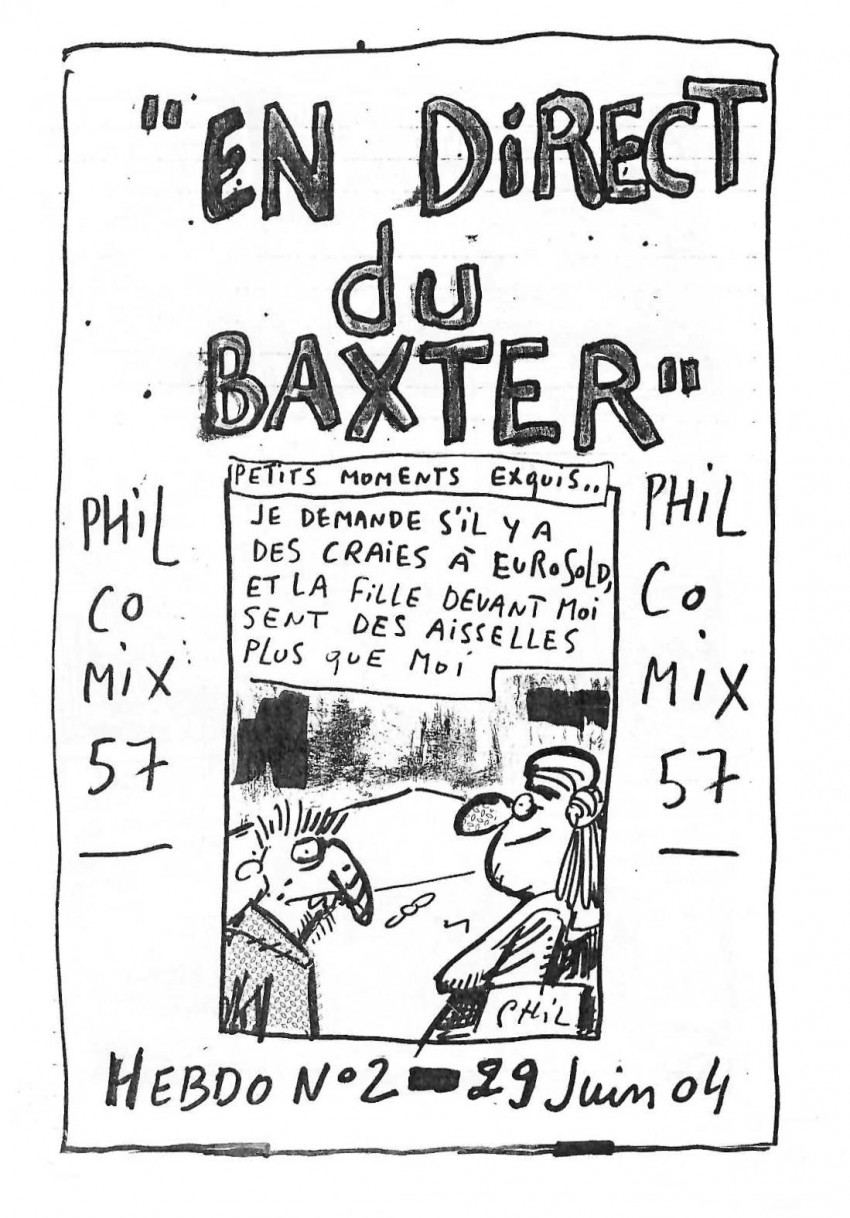 "EN DiRECT
du
BAXTER"
PETITS MOMENTS EXQUIS..
JE DEMANDE S'iL Y A
DES CRAiES À EUROSOLD,
ET LA FiLLE DEVANT MOi
SENT DES AiSSELLES
PLUS QUE MOi
PHiL
CO
MiX
57
PHiL
CO
MiX
57
PHiL
HEBDO N°2 - 29 Juin 04